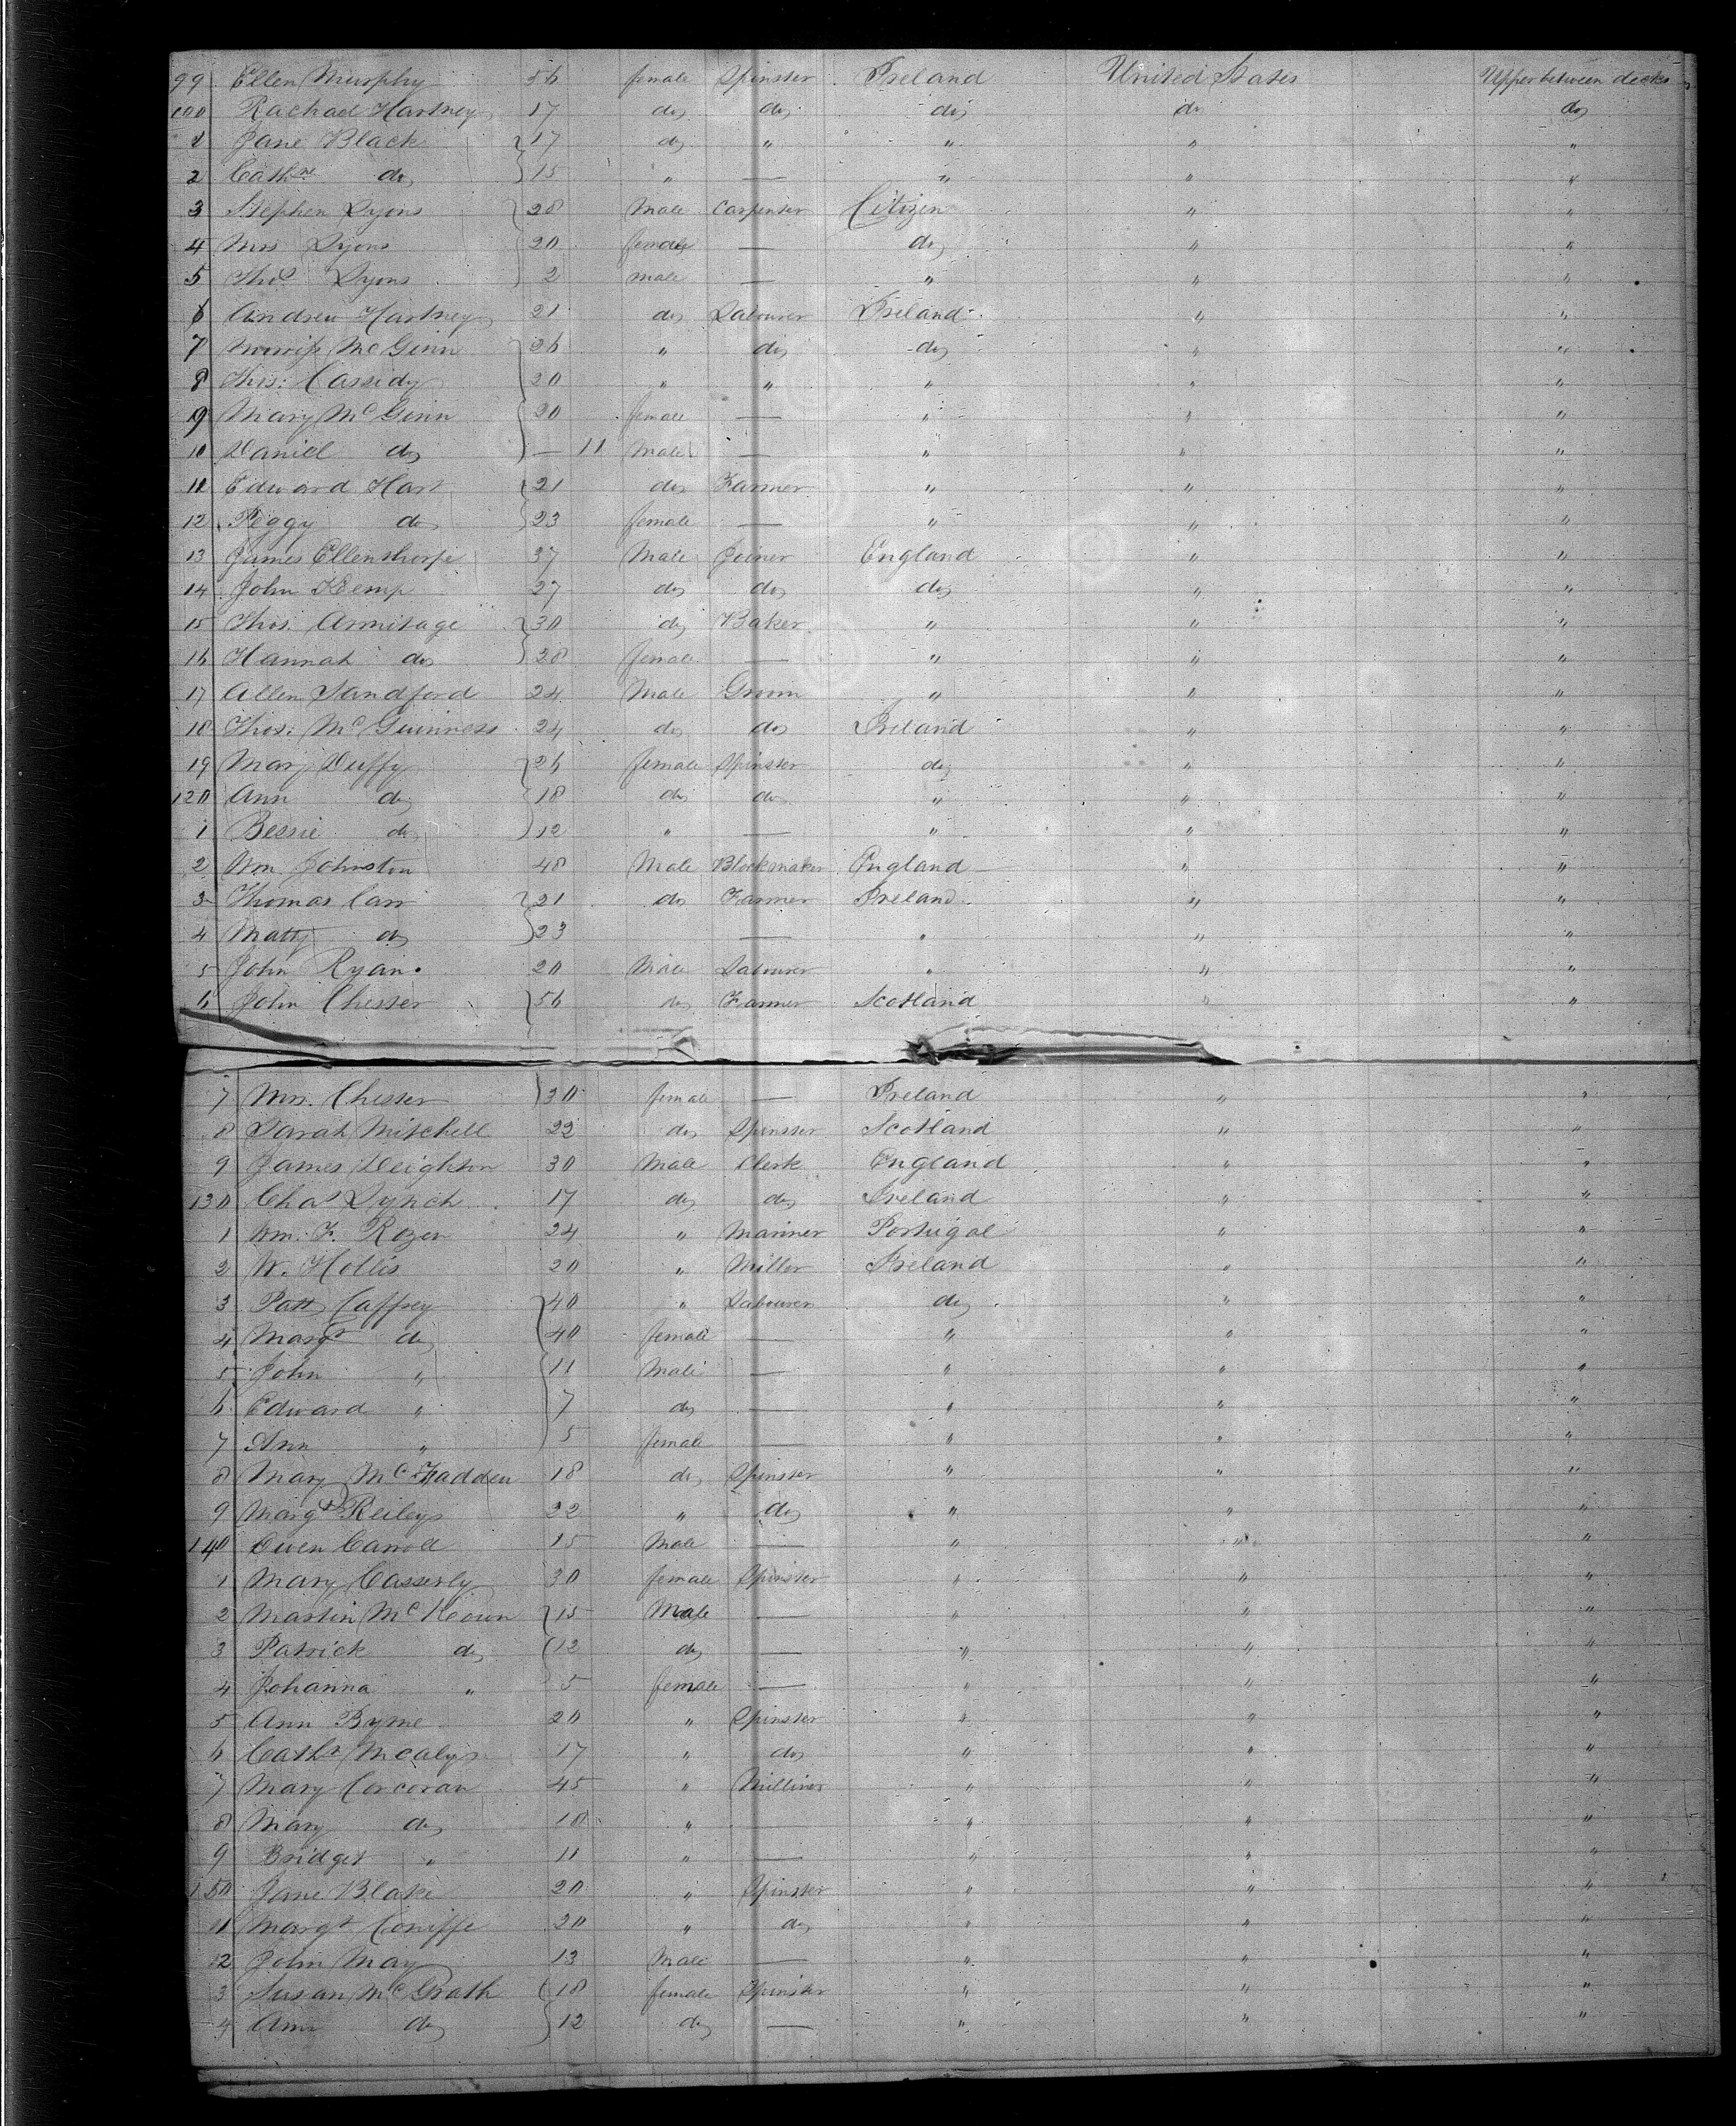 99 Ellen Murphy 56 female Spinster Ireland United States Upper between decks
100 Rachael Hartney 17 do do do do do
1 Jane Black 17 do " " " "
2 Cathne do 15 " — " " "
3 Stephen Lyons 28 Male Carpenter Citizen " "
4 Mrs Lyons 20 female — do " "
5 Thos Lyons 2 male — " " "
6 Andrew Hartney 21 do Labourer Ireland " "
7 McGinn 26 " do do " "
8 Thos: Cassidy 20 " " " " "
9 Mary McGinn 20 female — " " "
10 Daniel do — 11 Male — " " "
11 Edward Hart 21 do Farmer " " "
12 Peggy do 23 female — " " "
13 James Ellenthorpe 37 Male Joiner England " "
14 John Kemp 27 do do do " "
15 Thos. Armitage 30 do Baker " " "
16 Hannah do 28 female — " " "
17 Allen Sandford 24 Male Groom " " "
18 Thos. McGuinness 24 do do Ireland " "
19 Mary Duffy 26 female Spinster do " "
120 Ann do 18 do do " " "
1 Bessie do 12 " — " " "
2 Wm Johnston 48 Male Blockmaker England " "
3 Thomas Carr 21 do Farmer Ireland " "
4 Matty do 23 — " " "
5 John Ryan 20 Male Labourer " " "
6 John Chesser 56 do Farmer Scotland " "
7 Mrs. Chesser 30 female — Ireland " "
8 Sarah Mitchell 22 do Spinster Scotland " "
9 James Deighton 30 Male Clerk England " "
130 Chas Lynch 17 do do Ireland " "
1 Wm. F. Rozer 24 " Mariner Portugal " "
2 W. Hollis 20 " Miller Ireland " "
3 Patt Caffrey 40 " Labourer do " "
4 Margt do 40 female — " " "
5 John " 11 Male — " " "
6 Edward " 7 do — " " "
7 Ann " 5 female — " " "
8 Mary McFadden 18 do Spinster " " "
9 Margt Reiley 22 " do " " "
140 Owen Carroll 15 Male — " " "
1 Mary Casserly 30 female Spinster " " "
2 Martin McKeown 15 Male — " " "
3 Patrick do 12 do — " " "
4 Johanna " 5 female — " " "
5 Ann Byrne 20 " Spinster " " "
6 Cathe Mealy 17 " do " " "
7 Mary Corcoran 45 " Milliner " " "
8 Mary do 18 " — " " "
9 Bridget " 11 " — " " "
150 Jane Blake 20 " Spinster " " "
1 Margt Coniffe 20 " do " " "
2 John May 13 Male — " " "
3 Susan McGrath 18 female Spinster " " "
4 Ann do 12 do — " " "